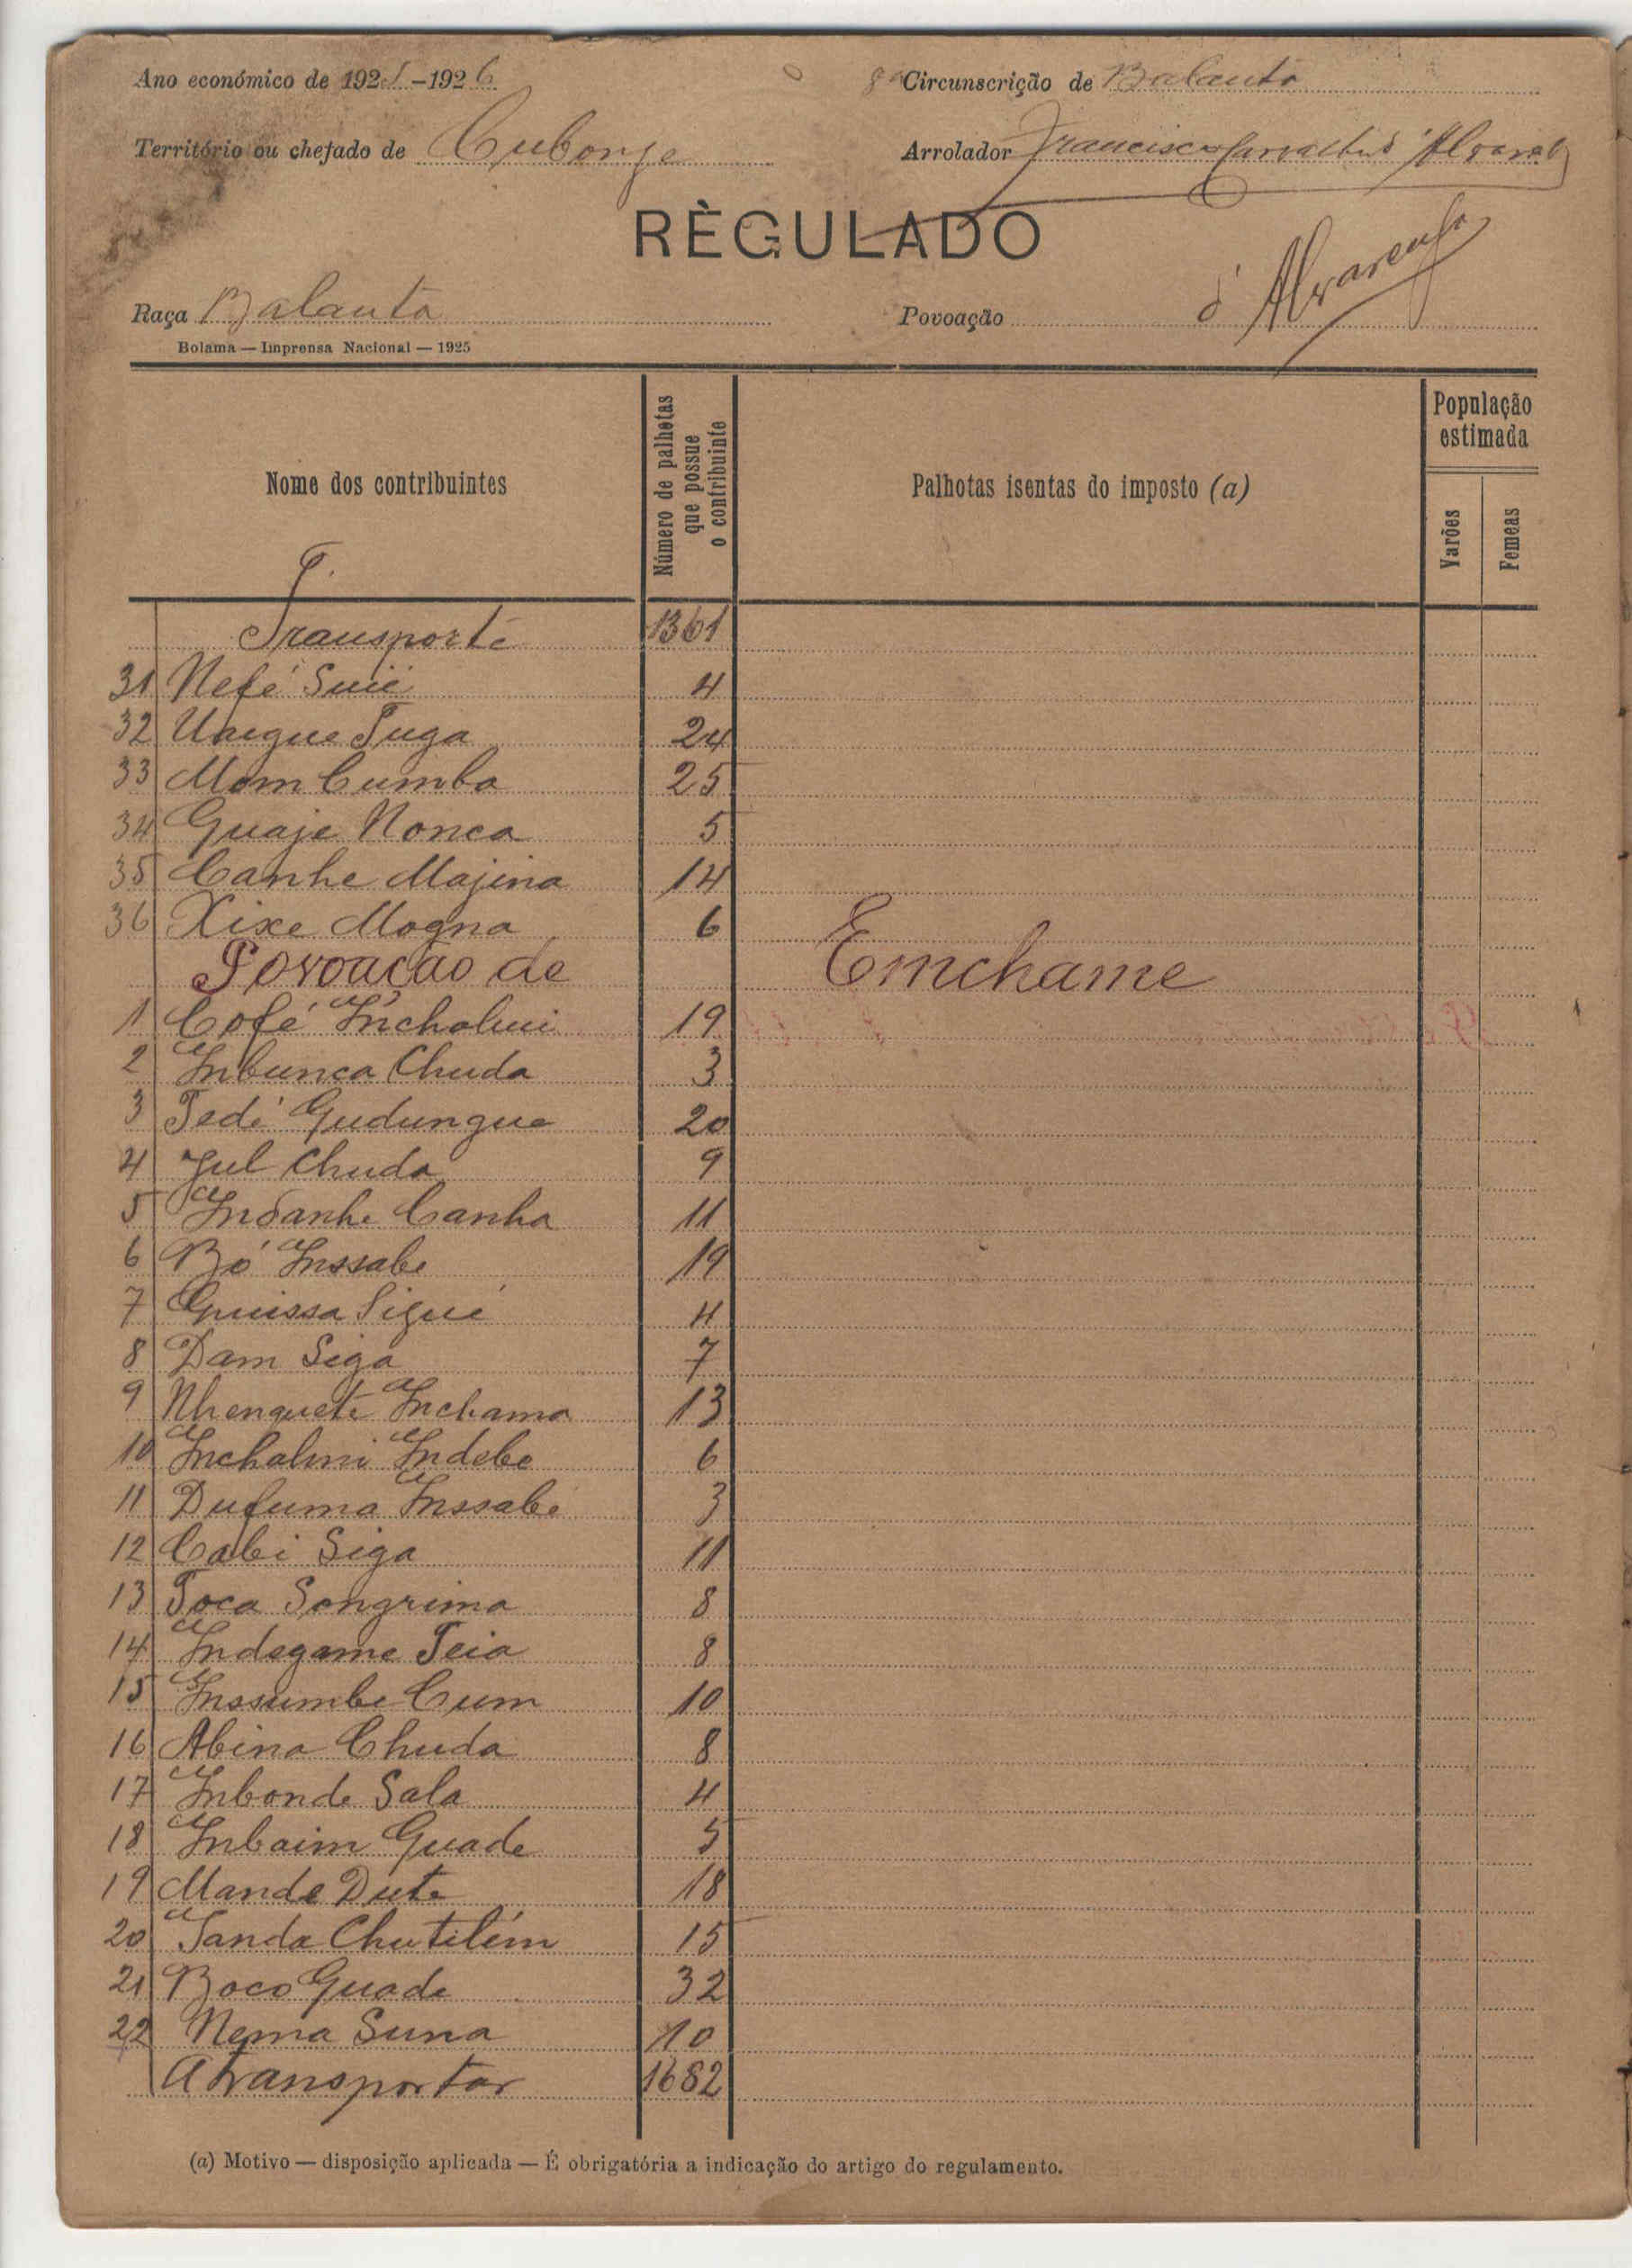 Ano económico de 1925-1926
8ª Circunscrição de Balanta
Território ou chefado de Cubonje
Arrolador Francisco Carvalho d'Alvarenga
RÈGULADO
d'Alvarenga
Raça Balanta
Povoação
Bolama — Imprensa Nacional — 1925
Nome dos contribuintes
Número de palhotas que possue o contribuinte
Palhotas isentas do imposto (a)
População estimada
Varões
Femeas
Transporte 1361
31 Nefé Suié 4
32 Unegue Tuga 24
33 Mom Cumba 25
34 Guaje Nonca 5
35 Canhe Majina 14
36 Xixe Mogna 6
Povoação de Emchame
1 Cofé Incholmi 19
2 Inbunca Chuda 3
3 Tedé Gudungue 20
4 Jul Chuda 9
5 Indanhe Canha 11
6 Bó Inssabe 19
7 Quissa Sigué 4
8 Dam Siga 7
9 Nhenquete Inchama 13
10 Inchalmi Indebe 6
11 Dufuma Inssabé 3
12 Cabi Siga 11
13 Toca Songrima 8
14 Indegame Teia 8
15 Inssumbe Cum 10
16 Abina Chuda 8
17 Inbonde Sala 4
18 Inbaim Guade 5
19 Mande Dute 18
20 Sanda Chutilém 15
21 Boco Guade 32
22 Nema Suna 10
A transportar 1682
(a) Motivo — disposição aplicada — É obrigatória a indicação do artigo do regulamento.